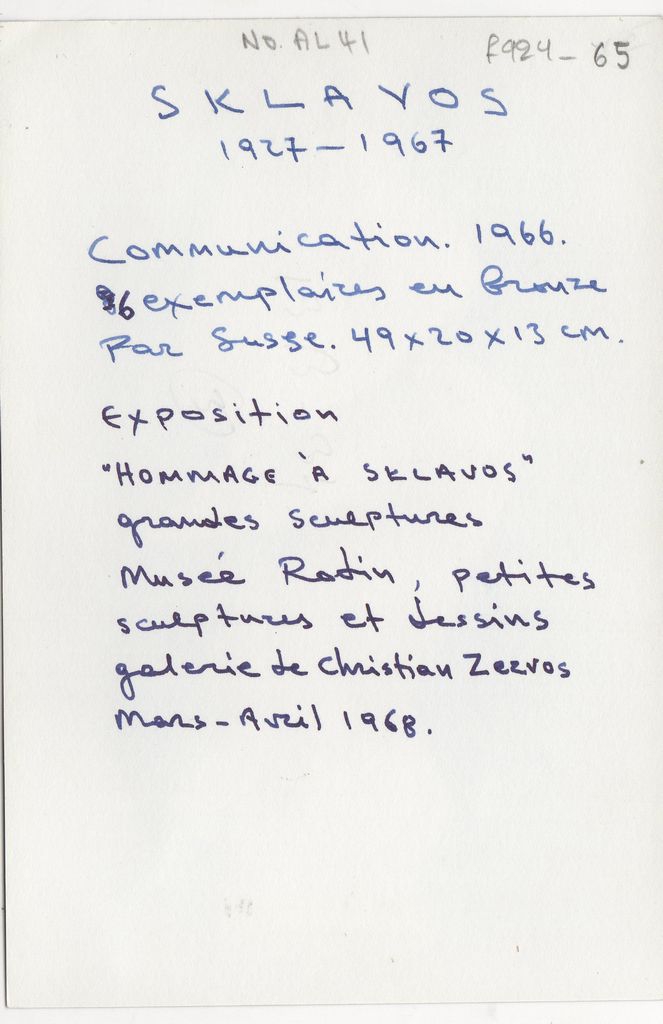 No. AL41
F924-65
SKLAVOS
1927-1967
Communication. 1966.
6 exemplaires en bronze
Par Susse. 49x20x13 cm.
Exposition
"HOMMAGE À SKLAVOS"
grandes sculptures
Musée Rodin, petites
sculptures et dessins
galerie de Christian Zervos
Mars-Avril 1968.